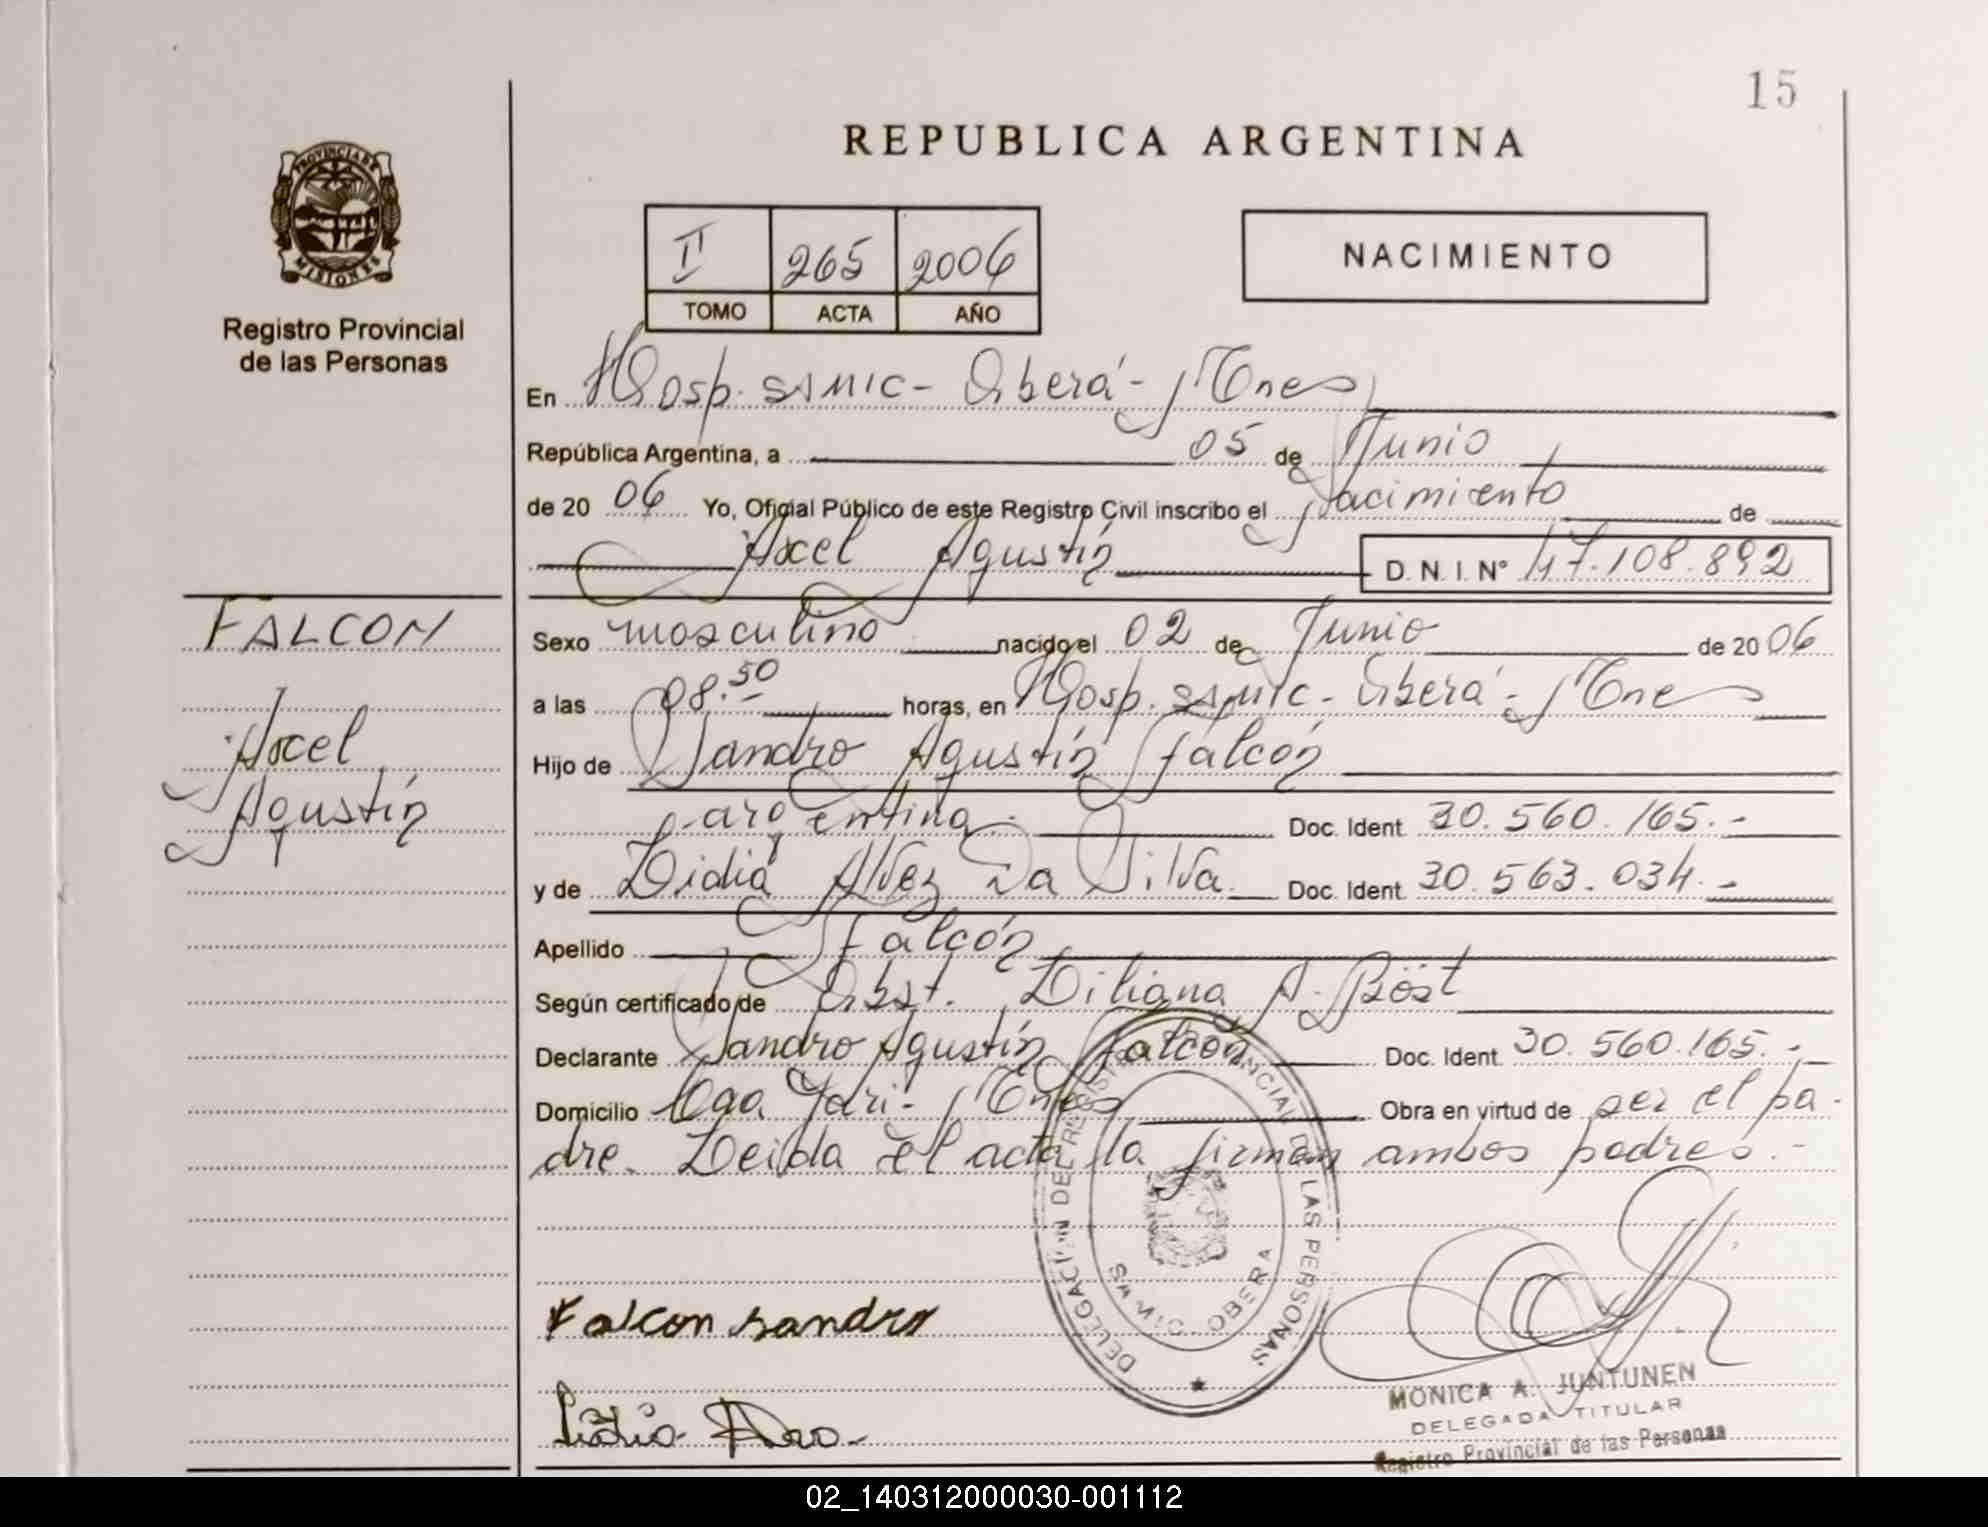 15
REPUBLICA ARGENTINA
PROVINCIA DE
MISIONES
Registro Provincial
de las Personas
II 265 2006
TOMO ACTA AÑO
NACIMIENTO
En Hosp. SAMIC - Oberá - Mnes
República Argentina, a 05 de Junio
de 20 06 Yo, Oficial Público de este Registro Civil inscribo el Nacimiento de
Axel Agustín D. N. I. N° 47.108.892
FALCON
Axel
Agustín
Sexo masculino nacido el 02 de Junio de 20 06
a las 08.50 horas, en Hosp. SAMIC - Oberá - Mnes
Hijo de Sandro Agustín Falcón
argentina. Doc. Ident. 30.560.165.-
y de Lidia Alvez Da Silva. Doc. Ident. 30.563.034.-
Apellido Falcón
Según certificado de Obst. Liliana A. Böst
Declarante Sandro Agustín Falcón Doc. Ident. 30.560.165.-
Domicilio Cga. Yari - Mnes Obra en virtud de ser el pa-
dre. Leida el acta la firman ambos padres.-
DELEGACION DEL REGISTRO PROVINCIAL DE LAS PERSONAS
SAMIC - OBERA
Falcon sandro
Lidia
MONICA A. JUNTUNEN
DELEGADA TITULAR
Registro Provincial de las Personas
02_140312000030-001112